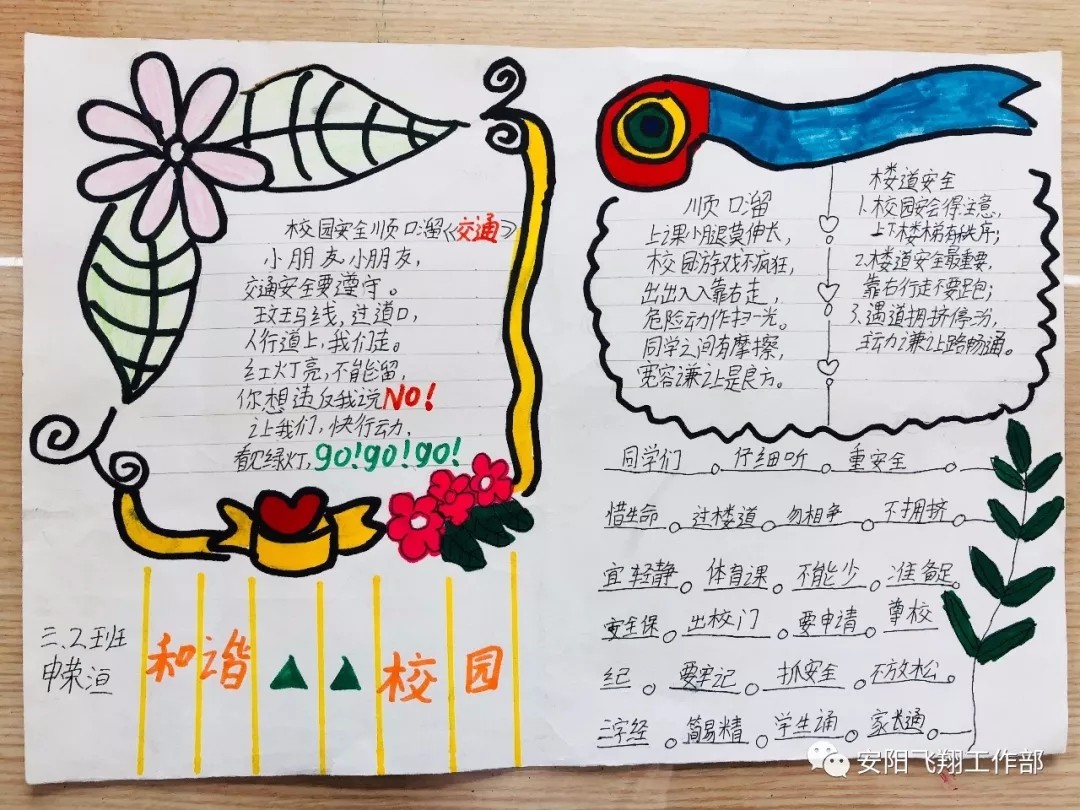 校园安全顺口溜《交通》
小朋友,小朋友,
交通安全要遵守。
斑马线,过道口,
人行道上,我们走。
红灯亮,不能留,
你想违反我说NO!
让我们,快行动,
看见绿灯,go!go!go!
三.2班
申荣洹
和谐校园
顺口溜
上课小腿莫伸长,
校园游戏不疯狂,
出出入入靠右走,
危险动作扫一光。
同学之间有摩擦,
宽容谦让是良方。
楼道安全
1.校园安会得注意,
上下楼梯有秩序;
2.楼道安全最重要,
靠右行走不要跑;
3.遇道拥挤停为,
主动谦让路畅通。
同学们。仔细听。重安全。
惜生命。过楼道。勿相争。不拥挤。
宜轻静。体育课。不能少。准备足。
安全保。出校门。要申请。尊校
纪。要牢记。抓安全。不放松。
三字经。简易精。学生诵。家长通。
安阳飞翔工作部